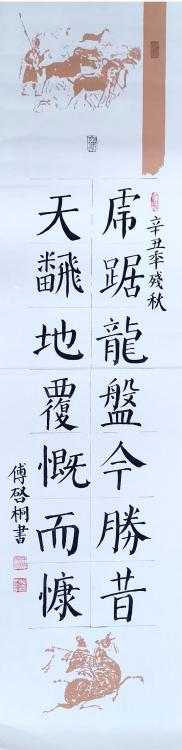 辛丑秊殘秋
虎踞龍盤今勝昔
天飜地覆慨而慷
傅啓桐書